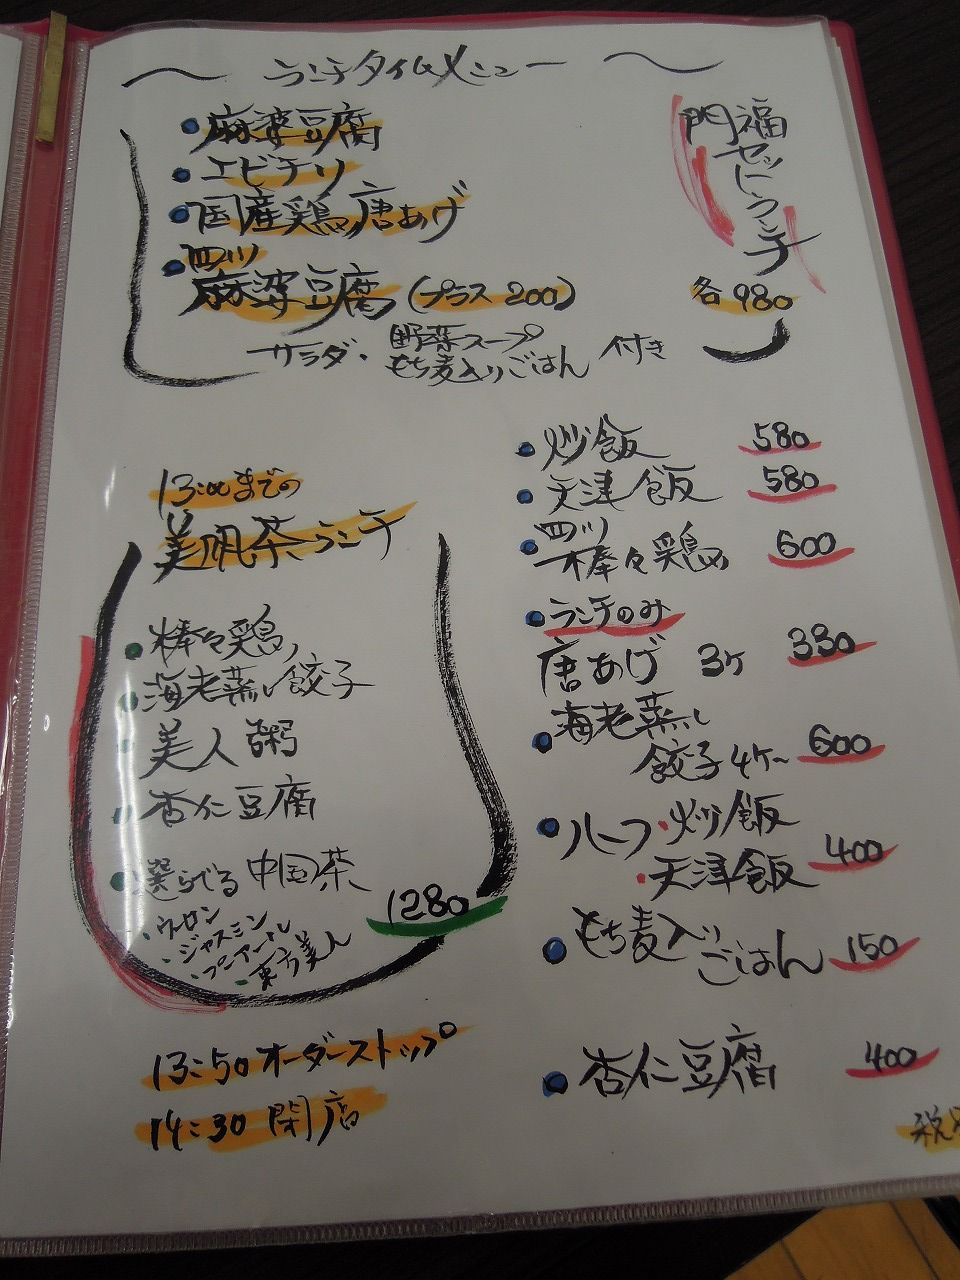 〜 ランチタイムメニュー 〜
門福
セットランチ
各980
・麻婆豆腐
・エビチリ
・国産鶏唐あげ
・四川
麻婆豆腐(プラス200)
サラダ・野菜スープ
もち麦入りごはん 付き
13:00までの
美帆茶ランチ
・棒々鶏
・海老蒸し餃子
・美人粥
・杏仁豆腐
・選らべる中国茶
・ウーロン
・ジャスミン
・プーアール
・東方美人
1280
13:50オーダーストップ
14:30閉店
・炒飯 580
・天津飯 580
・四川
棒々鶏 600
・ランチのみ
唐あげ 3ケ 330
・海老蒸し
餃子4ケ〜 600
・ハーフ・炒飯
・天津飯 400
・もち麦入り
ごはん 150
・杏仁豆腐 400
税